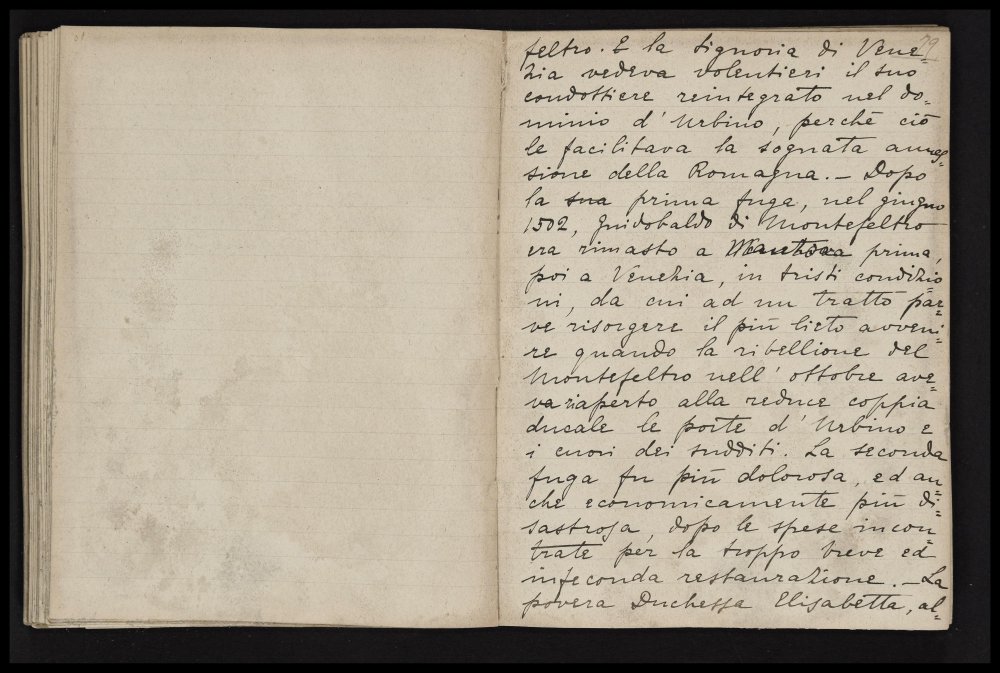 79
feltro. E la Signoria di Vene=
zia vedeva volentieri il suo
condottiere reintegrato nel do=
minio d' Urbino, perchè ciò
le facilitava la sognata annes=
sione della Romagna. — Dopo
la sua prima fuga, nel giugno
1502, Guidobaldo di Montefeltro
era rimasto a Mantova prima,
poi a Venezia, in tristi condizio=
ni, da cui ad un tratto par=
ve risorgere il più lieto avveni=
re quando la ribellione del
Montefeltro nell' ottobre ave=
va riaperto alla reduce coppia
ducale le porte d' Urbino e
i cuori dei sudditi. La seconda
fuga fu più dolorosa, ed an=
che economicamente più di=
sastrosa, dopo le spese incon=
trate per la troppo breve ed
infeconda restaurazione. — La
povera Duchessa Elisabetta, al=